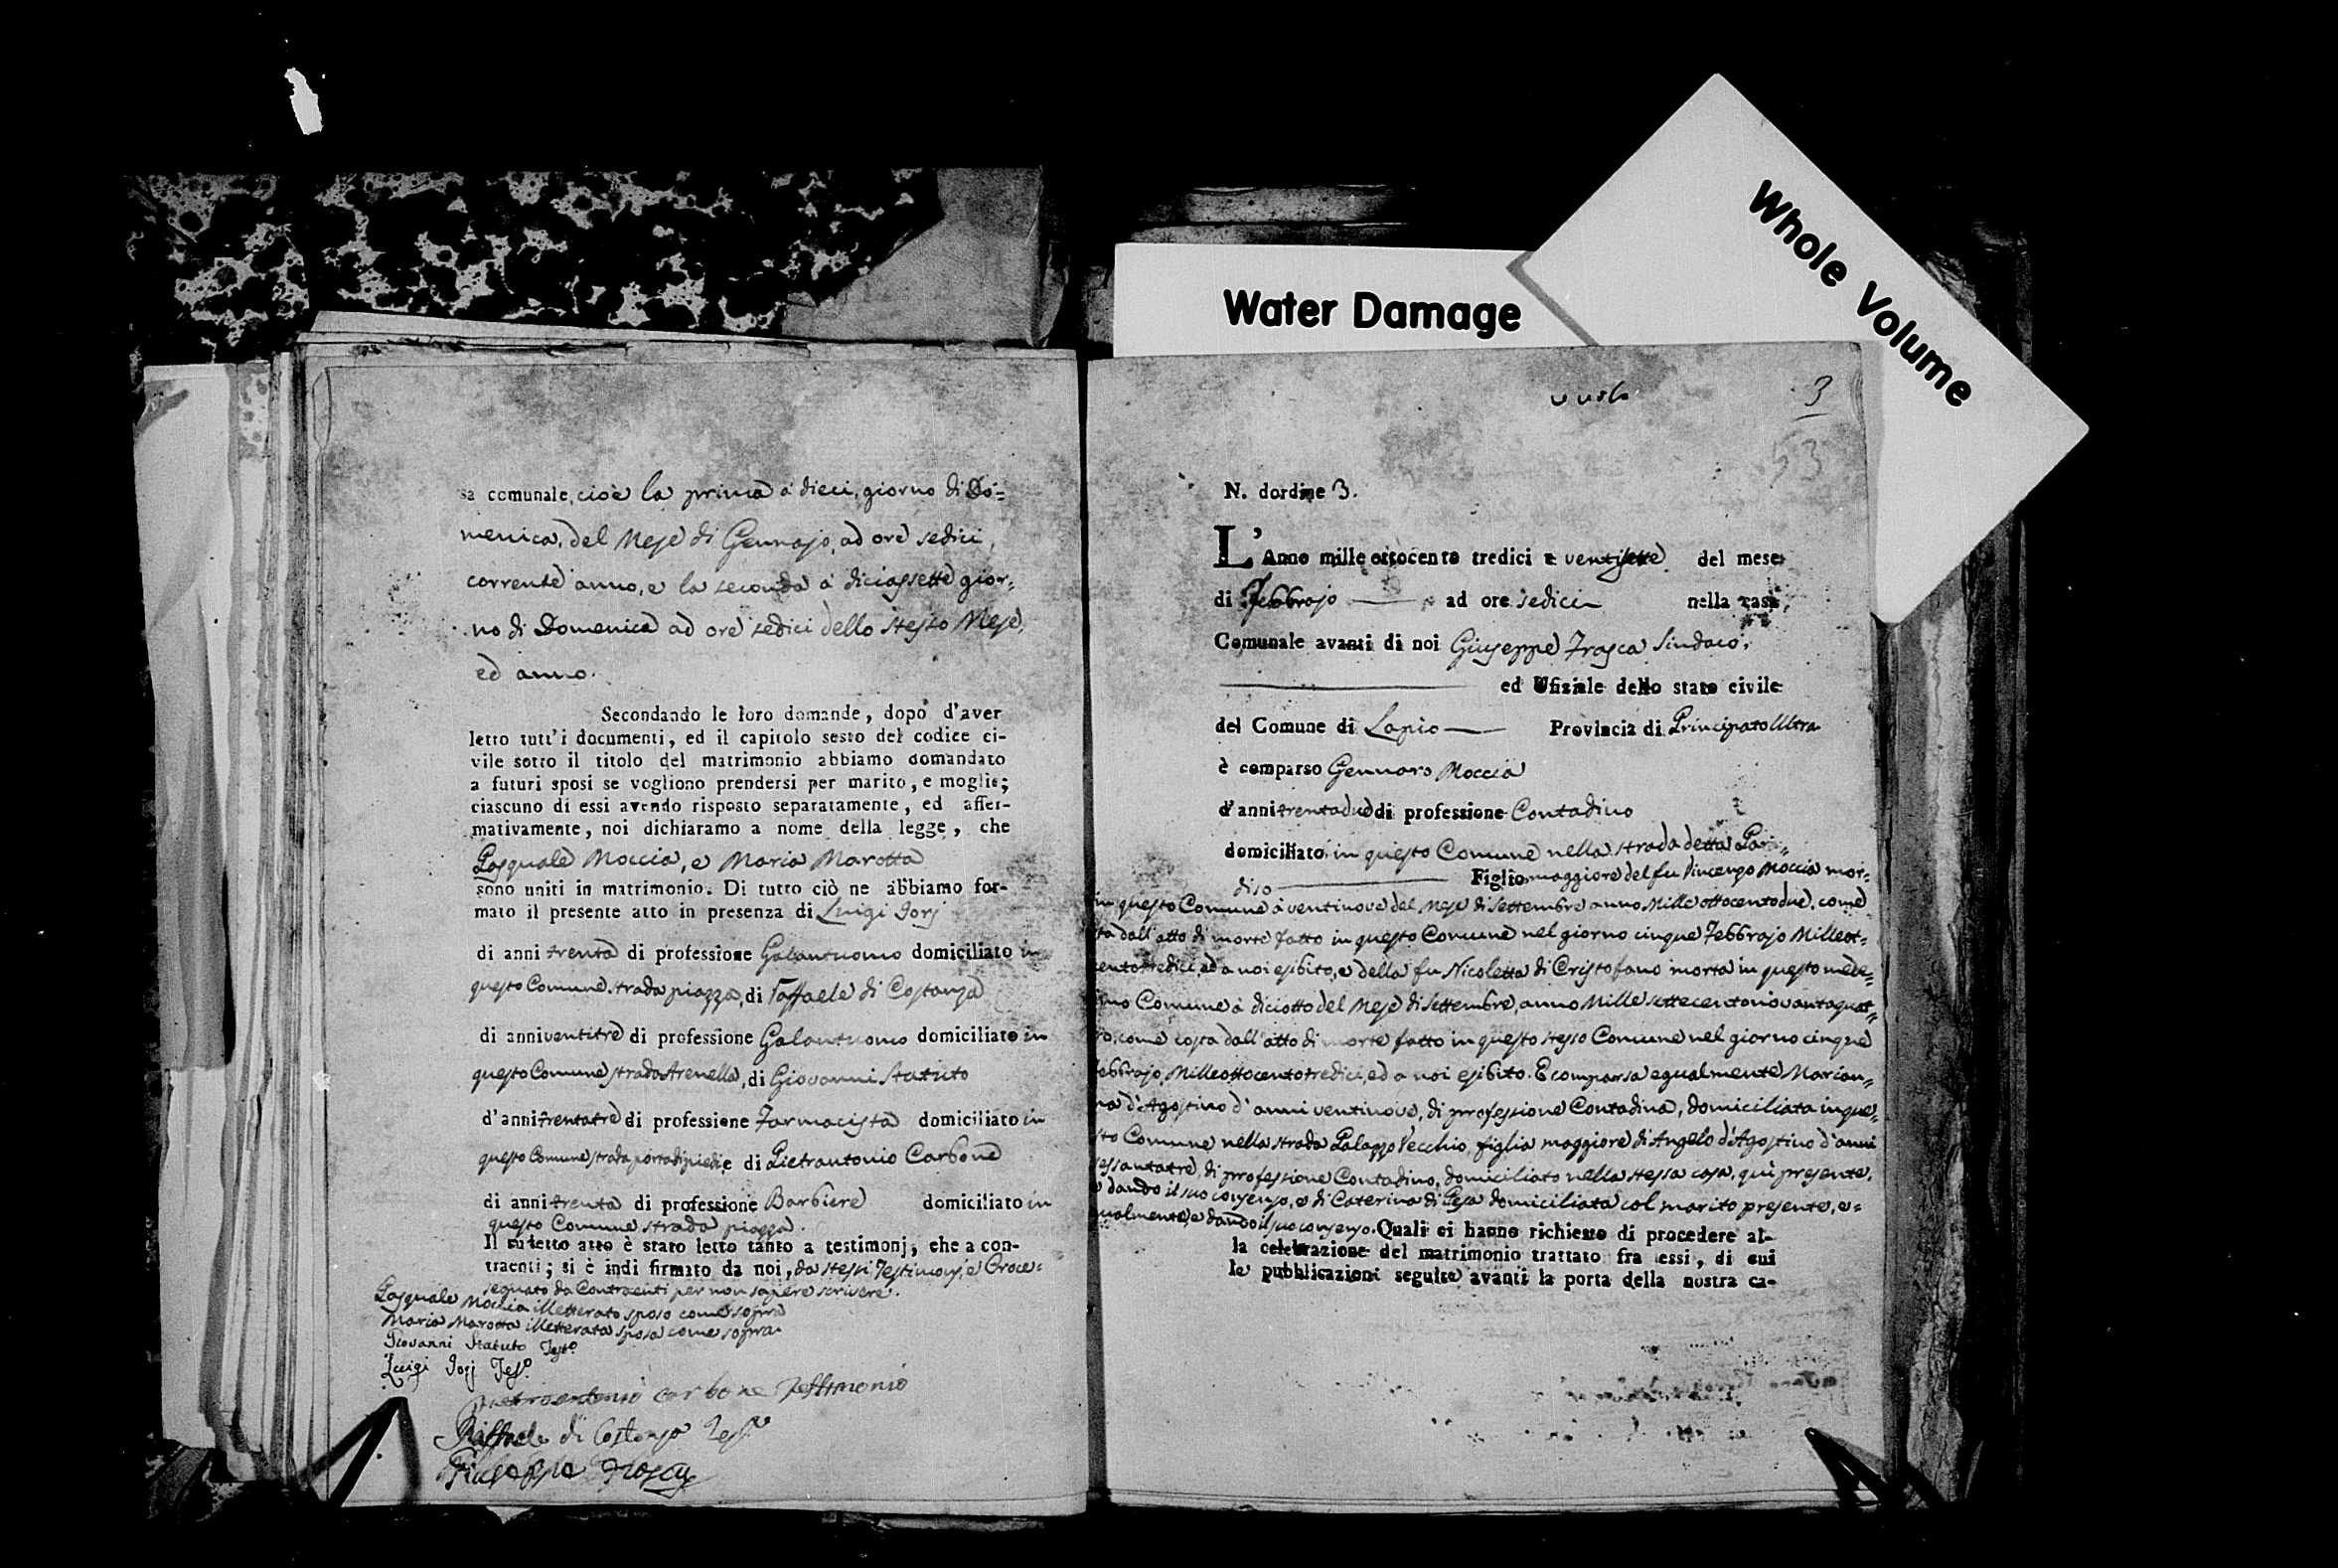 Whole Volume
Water Damage
sa comunale, cioè la prima à dieci, giorno di Do=
menica, del Mese di Gennajo, ad ore sedici,
corrente anno, e la seconda à diciassette gior=
no di Domenica ad ore sedici dello stesso Mese,
ed anno.
Secondando le loro domande, dopo d'aver
letto tutt'i documenti, ed il capitolo sesto del codice ci-
vile sotto il titolo del matrimonio abbiamo domandato
a futuri sposi se vogliono prendersi per marito, e moglie;
ciascuno di essi avendo risposto separatamente, ed affer-
mativamente, noi dichiaramo a nome della legge, che
Pasquale Moccia, e Maria Marotta
sono uniti in matrimonio. Di tutto ciò ne abbiamo for-
mato il presente atto in presenza di Luigi Jorj
di anni trenta di professione Galantuomo domiciliato in
questo Comune strada piazza, di Raffaele di Costanza
di anni ventitre di professione Galantuomo domiciliato in
questo Comune strada Arenella, di Giovanni Statuto
d'anni trentatre di professione Farmacista domiciliato in
questo Comune strada portadipiedi, e di Pietrantonio Carbone
di anni trenta di professione Barbiere domiciliato in
questo Comune strada piazza.
Il sudetto atto è stato letto tanto a testimonj, che a con-
traenti; si è indi firmato da noi, da stessi Testimonj, e Croce=
segnato da Contraenti per non sapere scrivere.
Pasquale Moccia illetterato sposo come sopra
Maria Marotta illetterata sposa come sopra
Giovanni Statuto Testo
Luigi Jorj Teso
Pietroantonio carbone Testimonio
Raffaele di Costanza Testo
Giuseppe Frasca
3
53
N. dordine 3.
L'Anno mille ottocento tredici a ventisette del mese
di Febbrajo ad ore sedici nella casa
Comunale avanti di noi Giuseppe Frasca Sindaco,
ed Ufiziale dello stato civile
del Comune di Lapio Provincia di Principato Ultra
è comparso Gennaro Moccia
d'anni trentadue di professione Contadino
domiciliato in questo Comune nella strada detta Para=
diso Figlio maggiore del fu Vincenzo Moccia mor=
in questo Comune à ventinove del Mese di Settembre anno Mille ottocentodue, come
sta dall'atto di morte fatto in questo Comune nel giorno cinque Febbrajo Milleot=
centotredici, ed a noi esibito, e della fu Nicoletta di Cristofano morta in questo mede=
smo Comune à diciotto del Mese di Settembre, anno Mille settecentonovantaquat=
ro, come costa dall'atto di morte fatto in questo stesso Comune nel giorno cinque
ebbrajo, Milleottocentotredici, ed a noi esibito. E comparsa egualmente Marian=
na d'Agostino d'anni ventinove, di professione Contadina, domiciliata in que=
sto Comune nella strada Palazzo Vecchio, figlia maggiore di Angelo d'Agostino d'anni
essantatre, di professione Contadino, domiciliato nella stessa casa, quì presente,
e dando il suo consenso, e di Caterina di Gesa domiciliata col marito presente, e=
ualmente, e dando il suo consenso. Quali ci hanno richiesto di procedere al-
la celebrazione del matrimonio trattato fra essi, di cui
le pubblicazioni seguite avanti la porta della nostra ca-